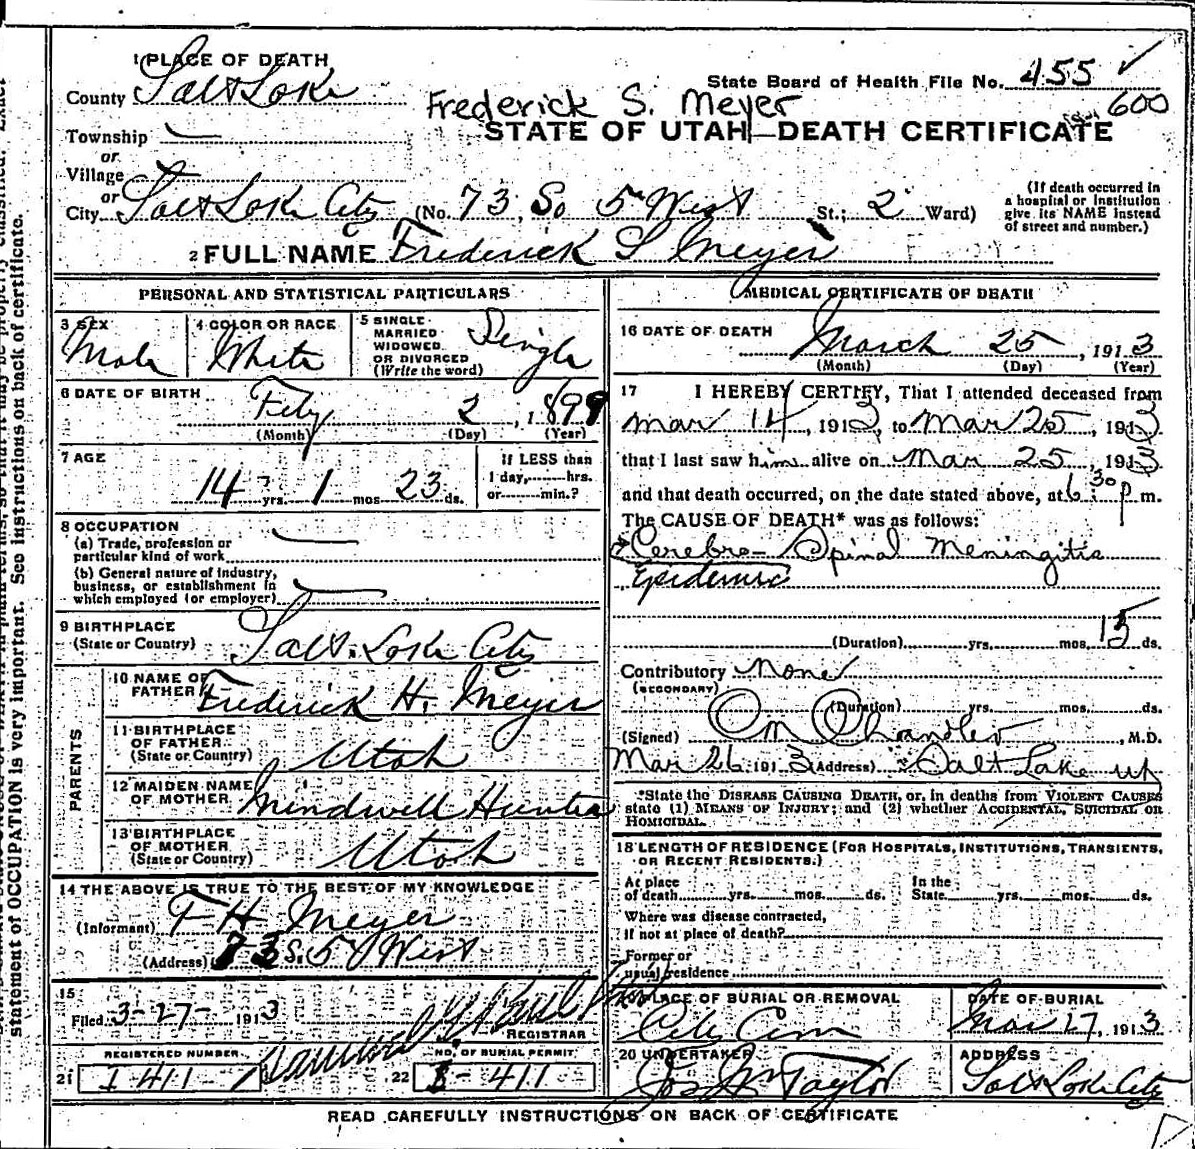 1 PLACE OF DEATH
County Salt Lake
State Board of Health File No. 455
600
Frederick S. Meyer
Township
STATE OF UTAH—DEATH CERTIFICATE
or
Village
or
City Salt Lake City (No. 73, So 5 West St.; 2 Ward)
(If death occurred in
a hospital or institution
give its NAME instead
of street and number.)
2 FULL NAME Frederick S Meyer
PERSONAL AND STATISTICAL PARTICULARS
3 SEX Male
4 COLOR OR RACE White
5 SINGLE
MARRIED
WIDOWED
OR DIVORCED
(Write the word) Single
6 DATE OF BIRTH Feby 2, 1899
(Month) (Day) (Year)
7 AGE
14 yrs. 1 mos 23 ds.
If LESS than
1 day,......hrs.
or......min.?
8 OCCUPATION
(a) Trade, profession or
particular kind of work
(b) General nature of industry,
business, or establishment in
which employed (or employer)
9 BIRTHPLACE
(State or Country) Salt Lake City
PARENTS
10 NAME OF
FATHER Frederick H. Meyer
11 BIRTHPLACE
OF FATHER
(State or Country) Utah
12 MAIDEN NAME
OF MOTHER Mindwell Hunter
13 BIRTHPLACE
OF MOTHER
(State or Country) Utah
14 THE ABOVE IS TRUE TO THE BEST OF MY KNOWLEDGE
(Informant) F H Meyer
(Address) 73 S. 5 West
15
Filed 3-27- 1913
REGISTRAR
REGISTERED NUMBER
NO. OF BURIAL PERMIT
21 I 411
22 I-411
MEDICAL CERTIFICATE OF DEATH
16 DATE OF DEATH
March 25, 1913
(Month) (Day) (Year)
17 I HEREBY CERTIFY, That I attended deceased from
Mar 14, 1913, to Mar 25, 1913
that I last saw him alive on Mar 25, 1913
and that death occurred, on the date stated above, at 6:30 p m.
The CAUSE OF DEATH* was as follows:
Cerebro-Spinal Meningitis
Epidemic
(Duration) yrs. mos. 15 ds.
Contributory None
(SECONDARY)
(Duration) yrs. mos. ds.
(Signed) Chandler, M.D.
Mar 26 1913 (Address) Salt Lake Ut
*State the DISEASE CAUSING DEATH, or, in deaths from VIOLENT CAUSES
state (1) MEANS OF INJURY; and (2) whether ACCIDENTAL, SUICIDAL OR
HOMICIDAL.
18 LENGTH OF RESIDENCE (FOR HOSPITALS, INSTITUTIONS, TRANSIENTS,
OR RECENT RESIDENTS.)
At place
of death......yrs......mos......ds.
In the
State......yrs......mos......ds.
Where was disease contracted,
If not at place of death?
Former or
usual residence
19 PLACE OF BURIAL OR REMOVAL
City Cem
DATE OF BURIAL
Mar 27, 1913
20 UNDERTAKER
Jos Wm Taylor
ADDRESS
Salt Lake City
READ CAREFULLY INSTRUCTIONS ON BACK OF CERTIFICATE
statement of OCCUPATION is very important. See instructions on back of certificate.